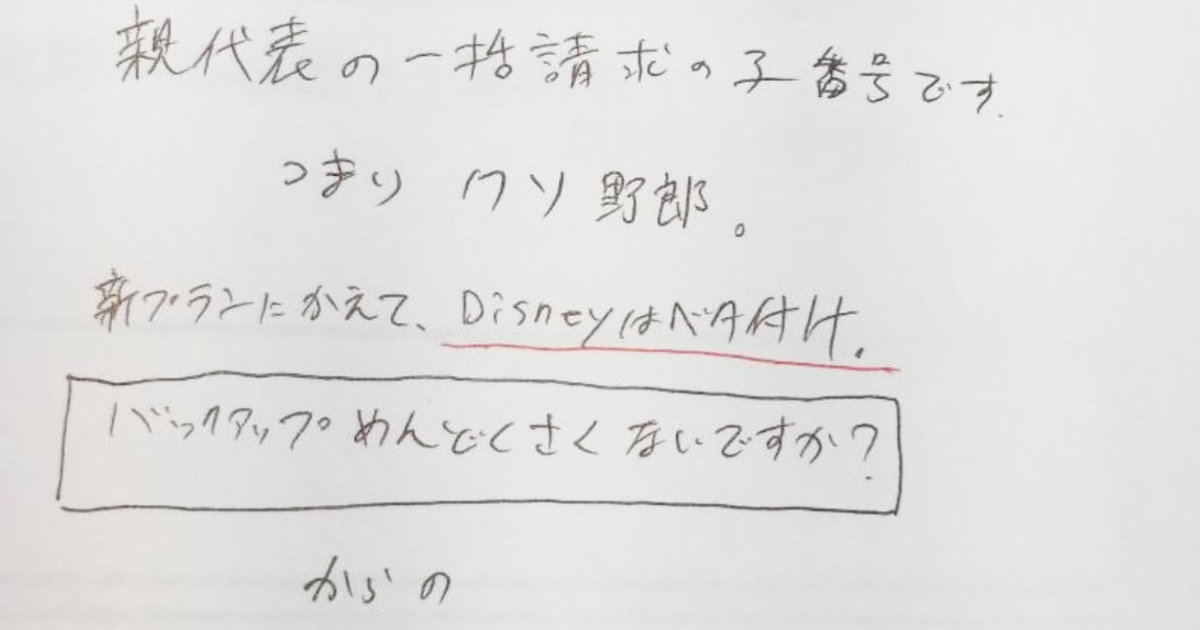 親代表の一括請求の子番号です
つまり クソ野郎。
新プランにかえて、Disneyはベタ付け.
バックアップめんどくさくないですか?
からの